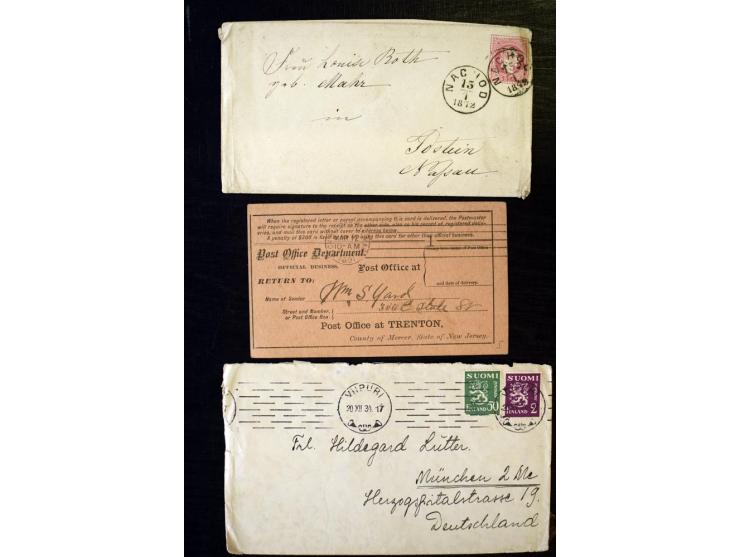 Frau Louise Roth
geb. Mahr
in
Idstein
Nassau.
NACHOD
15
1
1872
When the registered letter or parcel accompanying this card is delivered, the Postmaster
will require signature to the receipt on the other side, also on his record of registered deliv-
eries, and mail this card without cover to address below.
A penalty of $300 is fixed by law for using this card for other than official business.
Post Office Department.
OFFICIAL BUSINESS.
Post Office at
and date of delivery.
RETURN TO:
Name of Sender
Wm S Yard
Street and Number,
or Post Office Box
E State St
Post Office at TRENTON,
County of Mercer, State of New Jersey.
10-AM
SUOMI
FINLAND 50
SUOMI
FINLAND 2
VIIPURI
20 XII 30. 17
Frl. Hildegard Lutter.
München 2 Mc
Herzogspitalstrasse 19.
Deutschland